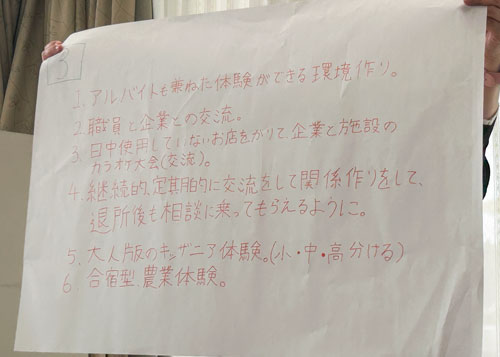 3
1. アルバイトも兼ねた体験ができる環境作り。
2. 職員と企業との交流。
3. 日中使用していないお店をかりて、企業と施設の
カラオケ大会(交流)。
4. 継続的、定期的に交流をして関係作りをして、
退所後も相談に乗ってもらえるように。
5. 大人版のキッザニア体験。(小・中・高分ける)
6. 合宿型、農業体験。